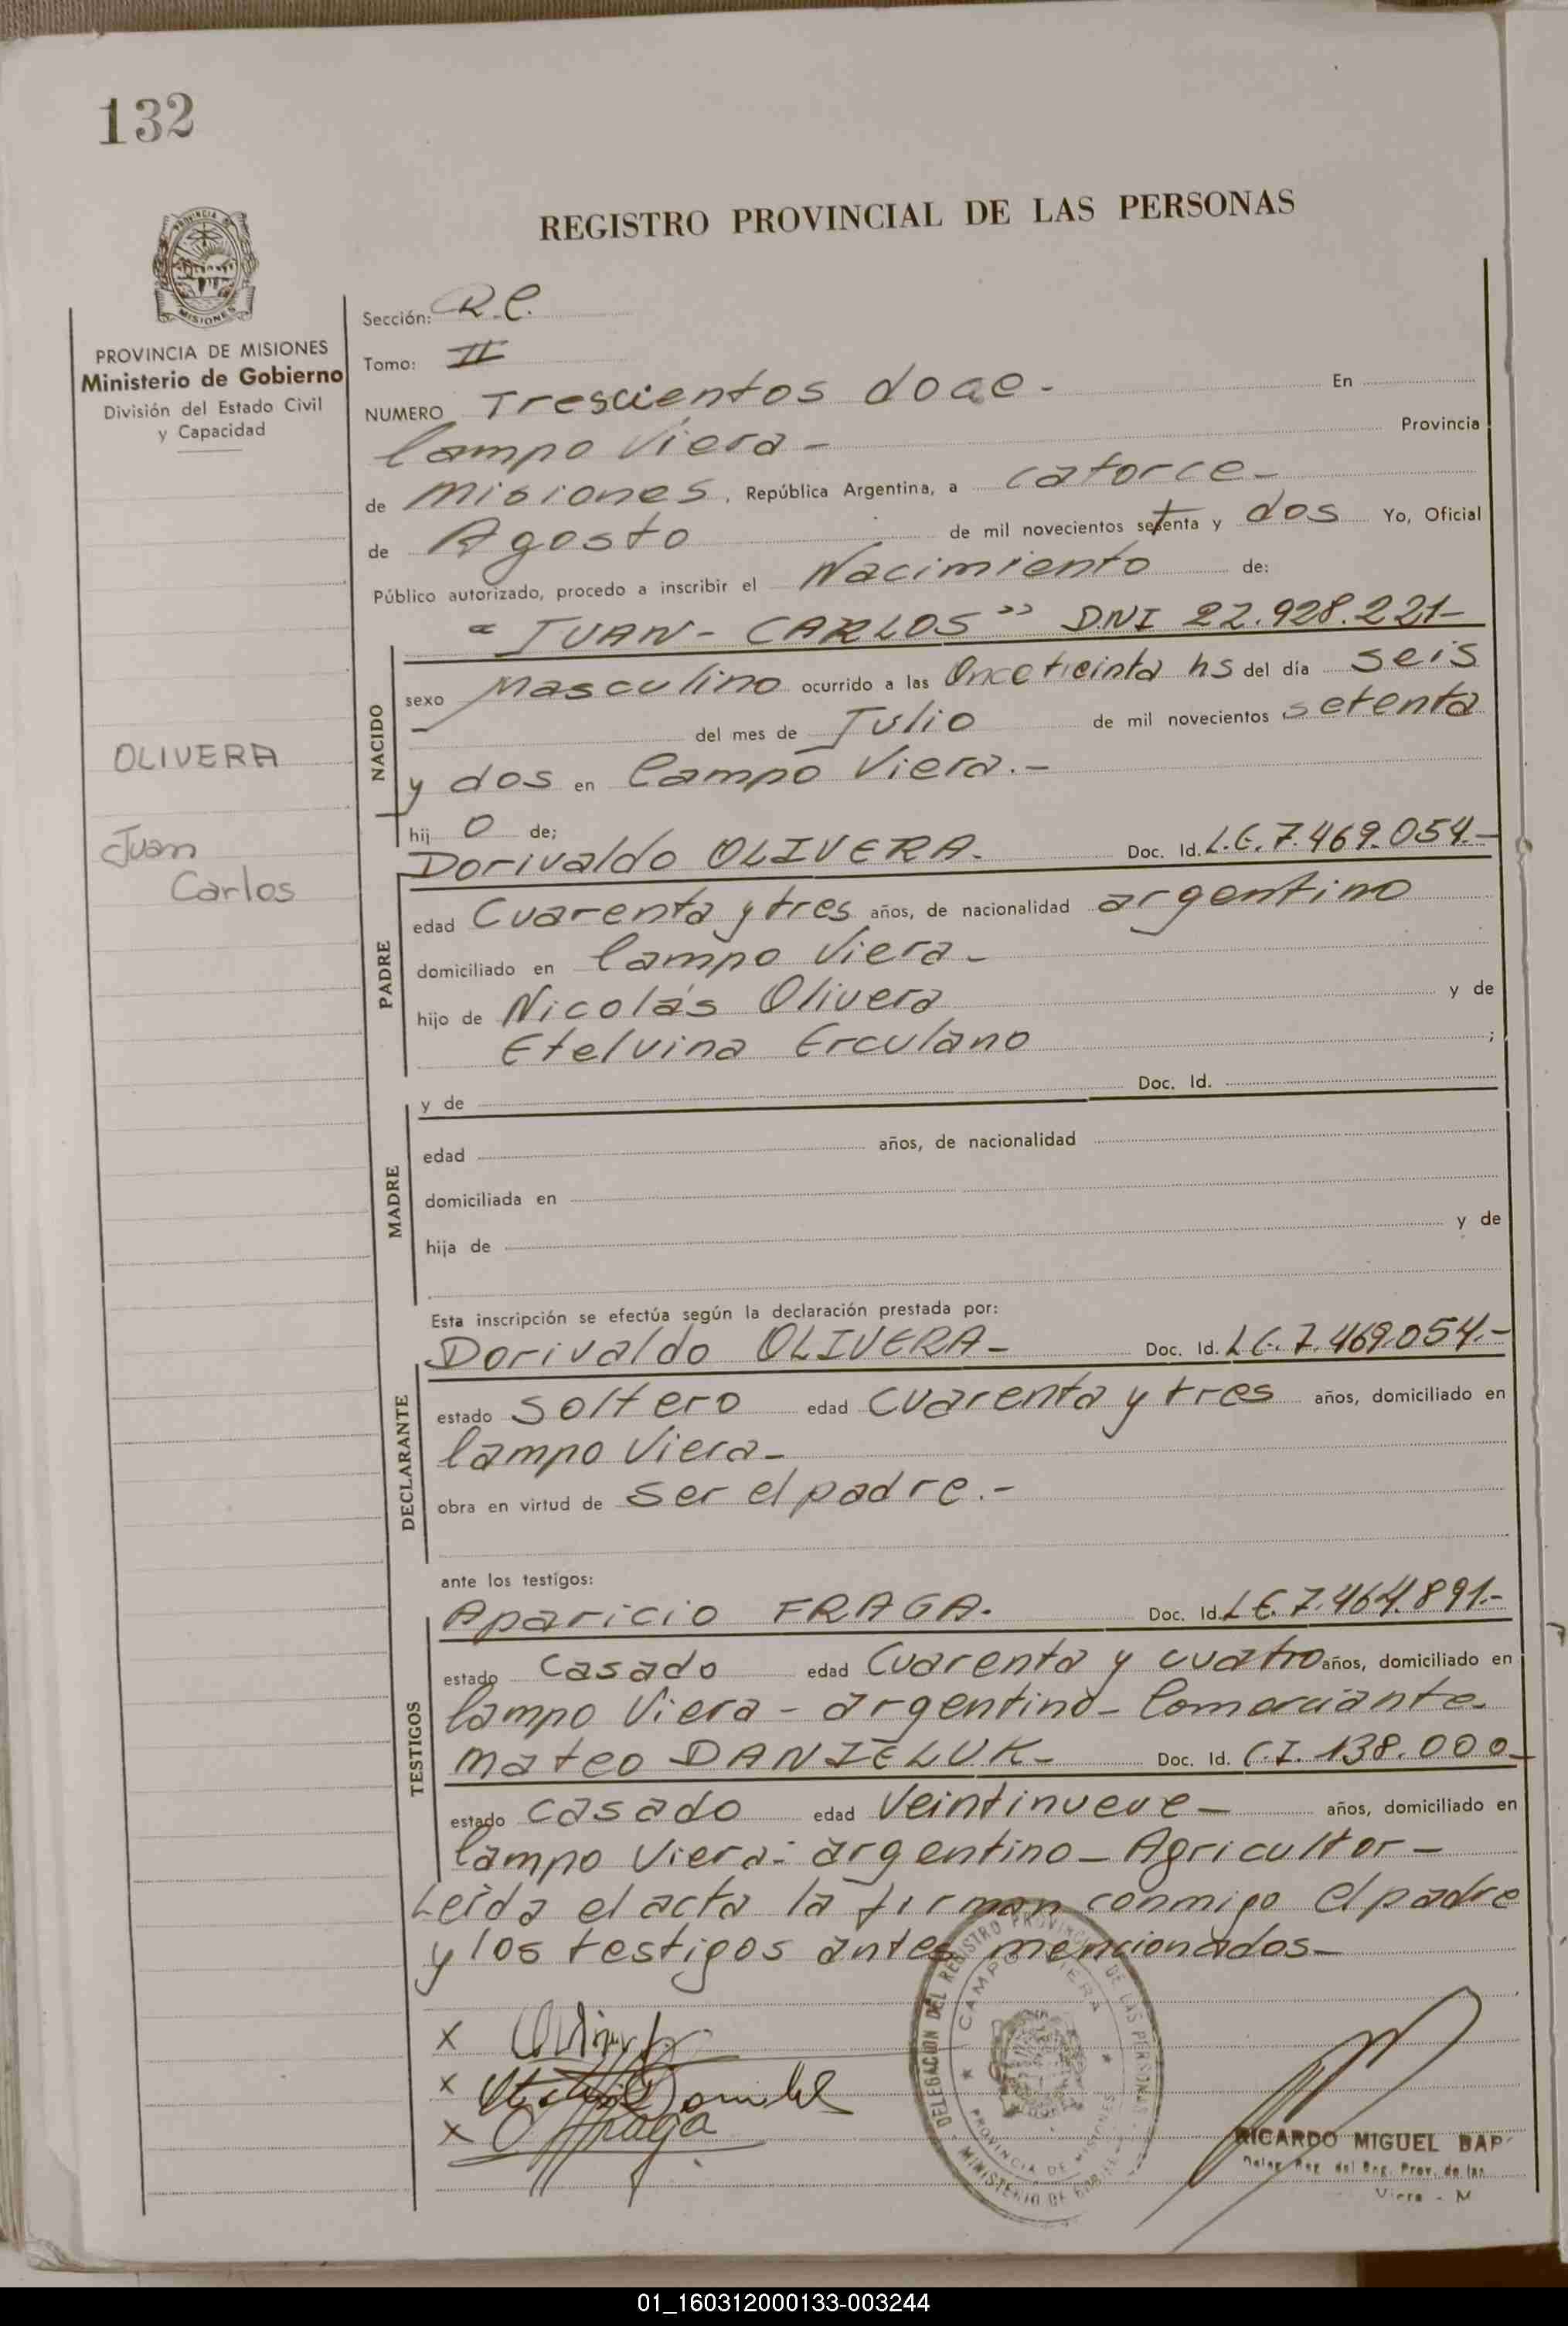 132
PROVINCIA DE MISIONES
Ministerio de Gobierno
División del Estado Civil
y Capacidad
OLIVERA
Juan
Carlos
REGISTRO PROVINCIAL DE LAS PERSONAS
Sección: R.C.
Tomo: II
NUMERO Trescientos doce - En
Campo Viera - Provincia
de Misiones, República Argentina, a catorce -
de Agosto de mil novecientos setenta y dos Yo, Oficial
Público autorizado, procedo a inscribir el Nacimiento de:
"JUAN - CARLOS" DNI 22.928.221-
NACIDO
sexo Masculino ocurrido a las Once treinta hs del día seis
- del mes de Julio de mil novecientos setenta
y dos en Campo Viera.-
hij o de;
PADRE
Dorivaldo OLIVERA. Doc. Id. L.E. 7.469.054.-
edad Cuarenta y tres años, de nacionalidad argentino
domiciliado en Campo Viera -
hijo de Nicolás Olivera y de
Etelvina Erculano ;
MADRE
y de Doc. Id.
edad años, de nacionalidad
domiciliada en
hija de y de
Esta inscripción se efectúa según la declaración prestada por:
DECLARANTE
Dorivaldo OLIVERA - Doc. Id. L.E. 7.469.054.-
estado Soltero edad Cuarenta y tres años, domiciliado en
Campo Viera -
obra en virtud de Ser el padre.-
ante los testigos:
TESTIGOS
Aparicio FRAGA. Doc. Id. L.E. 7.464.891.-
estado Casado edad Cuarenta y cuatro años, domiciliado en
Campo Viera - argentino - Comerciante.
Mateo DANIELUK - Doc. Id. C.I. 138.000-
estado Casado edad Veintinueve - años, domiciliado en
Campo Viera - argentino - Agricultor -
Leída el acta la firman conmigo el padre
y los testigos antes mencionados -
X
X
X
DELEGACION DEL REGISTRO PROVINCIAL DE LAS PERSONAS
CAMPO VIERA
PROVINCIA DE MISIONES
MINISTERIO DE
RICARDO MIGUEL BAP
Prov. de las
Viera - M
01_160312000133-003244